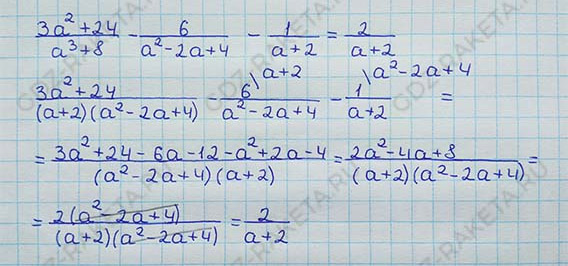 (3a²+24)/(a³+8) - 6/(a²-2a+4) - 1/(a+2) = 2/(a+2)
(3a²+24)/((a+2)(a²-2a+4)) 6\a+2/(a²-2a+4) - 1\a²-2a+4/(a+2) =
= (3a²+24-6a-12-a²+2a-4)/((a²-2a+4)(a+2)) = (2a²-4a+8)/((a+2)(a²-2a+4)) =
= 2(a²-2a+4)/((a+2)(a²-2a+4)) = 2/(a+2)
GDZ-RAKETA.RU